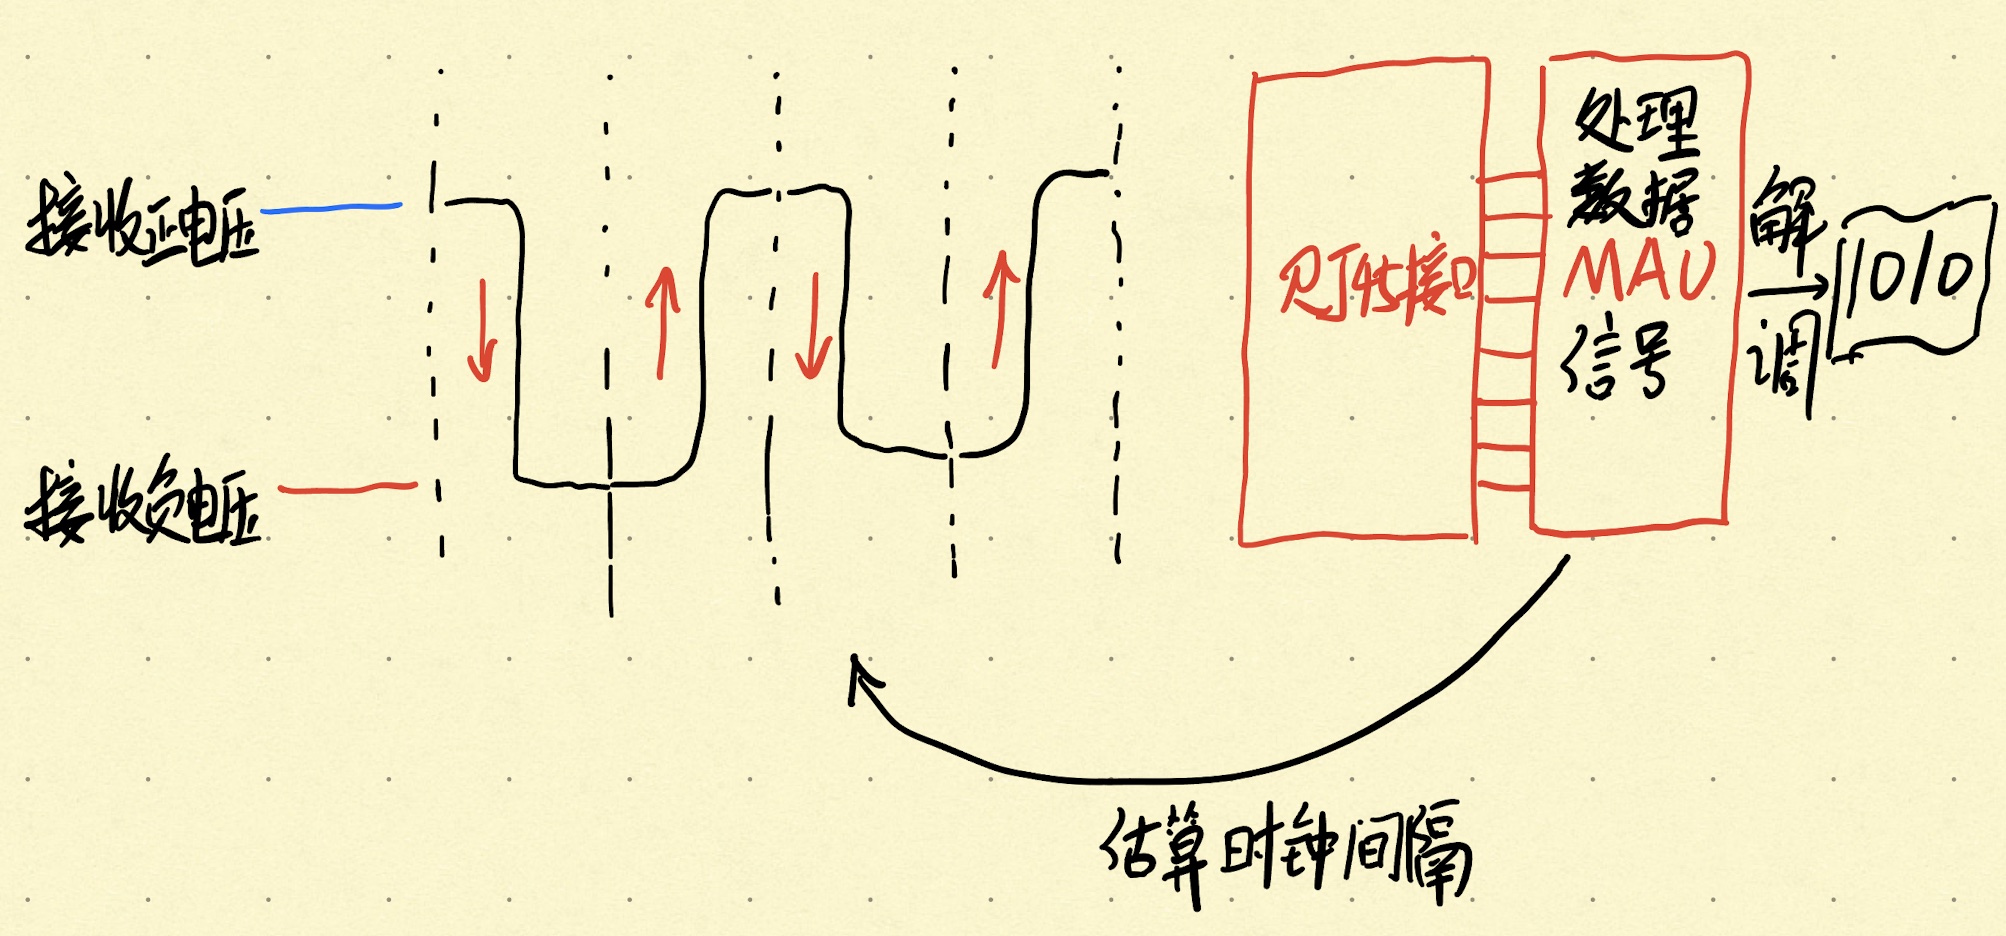 接收正电压
接收负电压
RJ45接口
处理
数据
MAU
信号
解
调
1010
估算时钟间隔